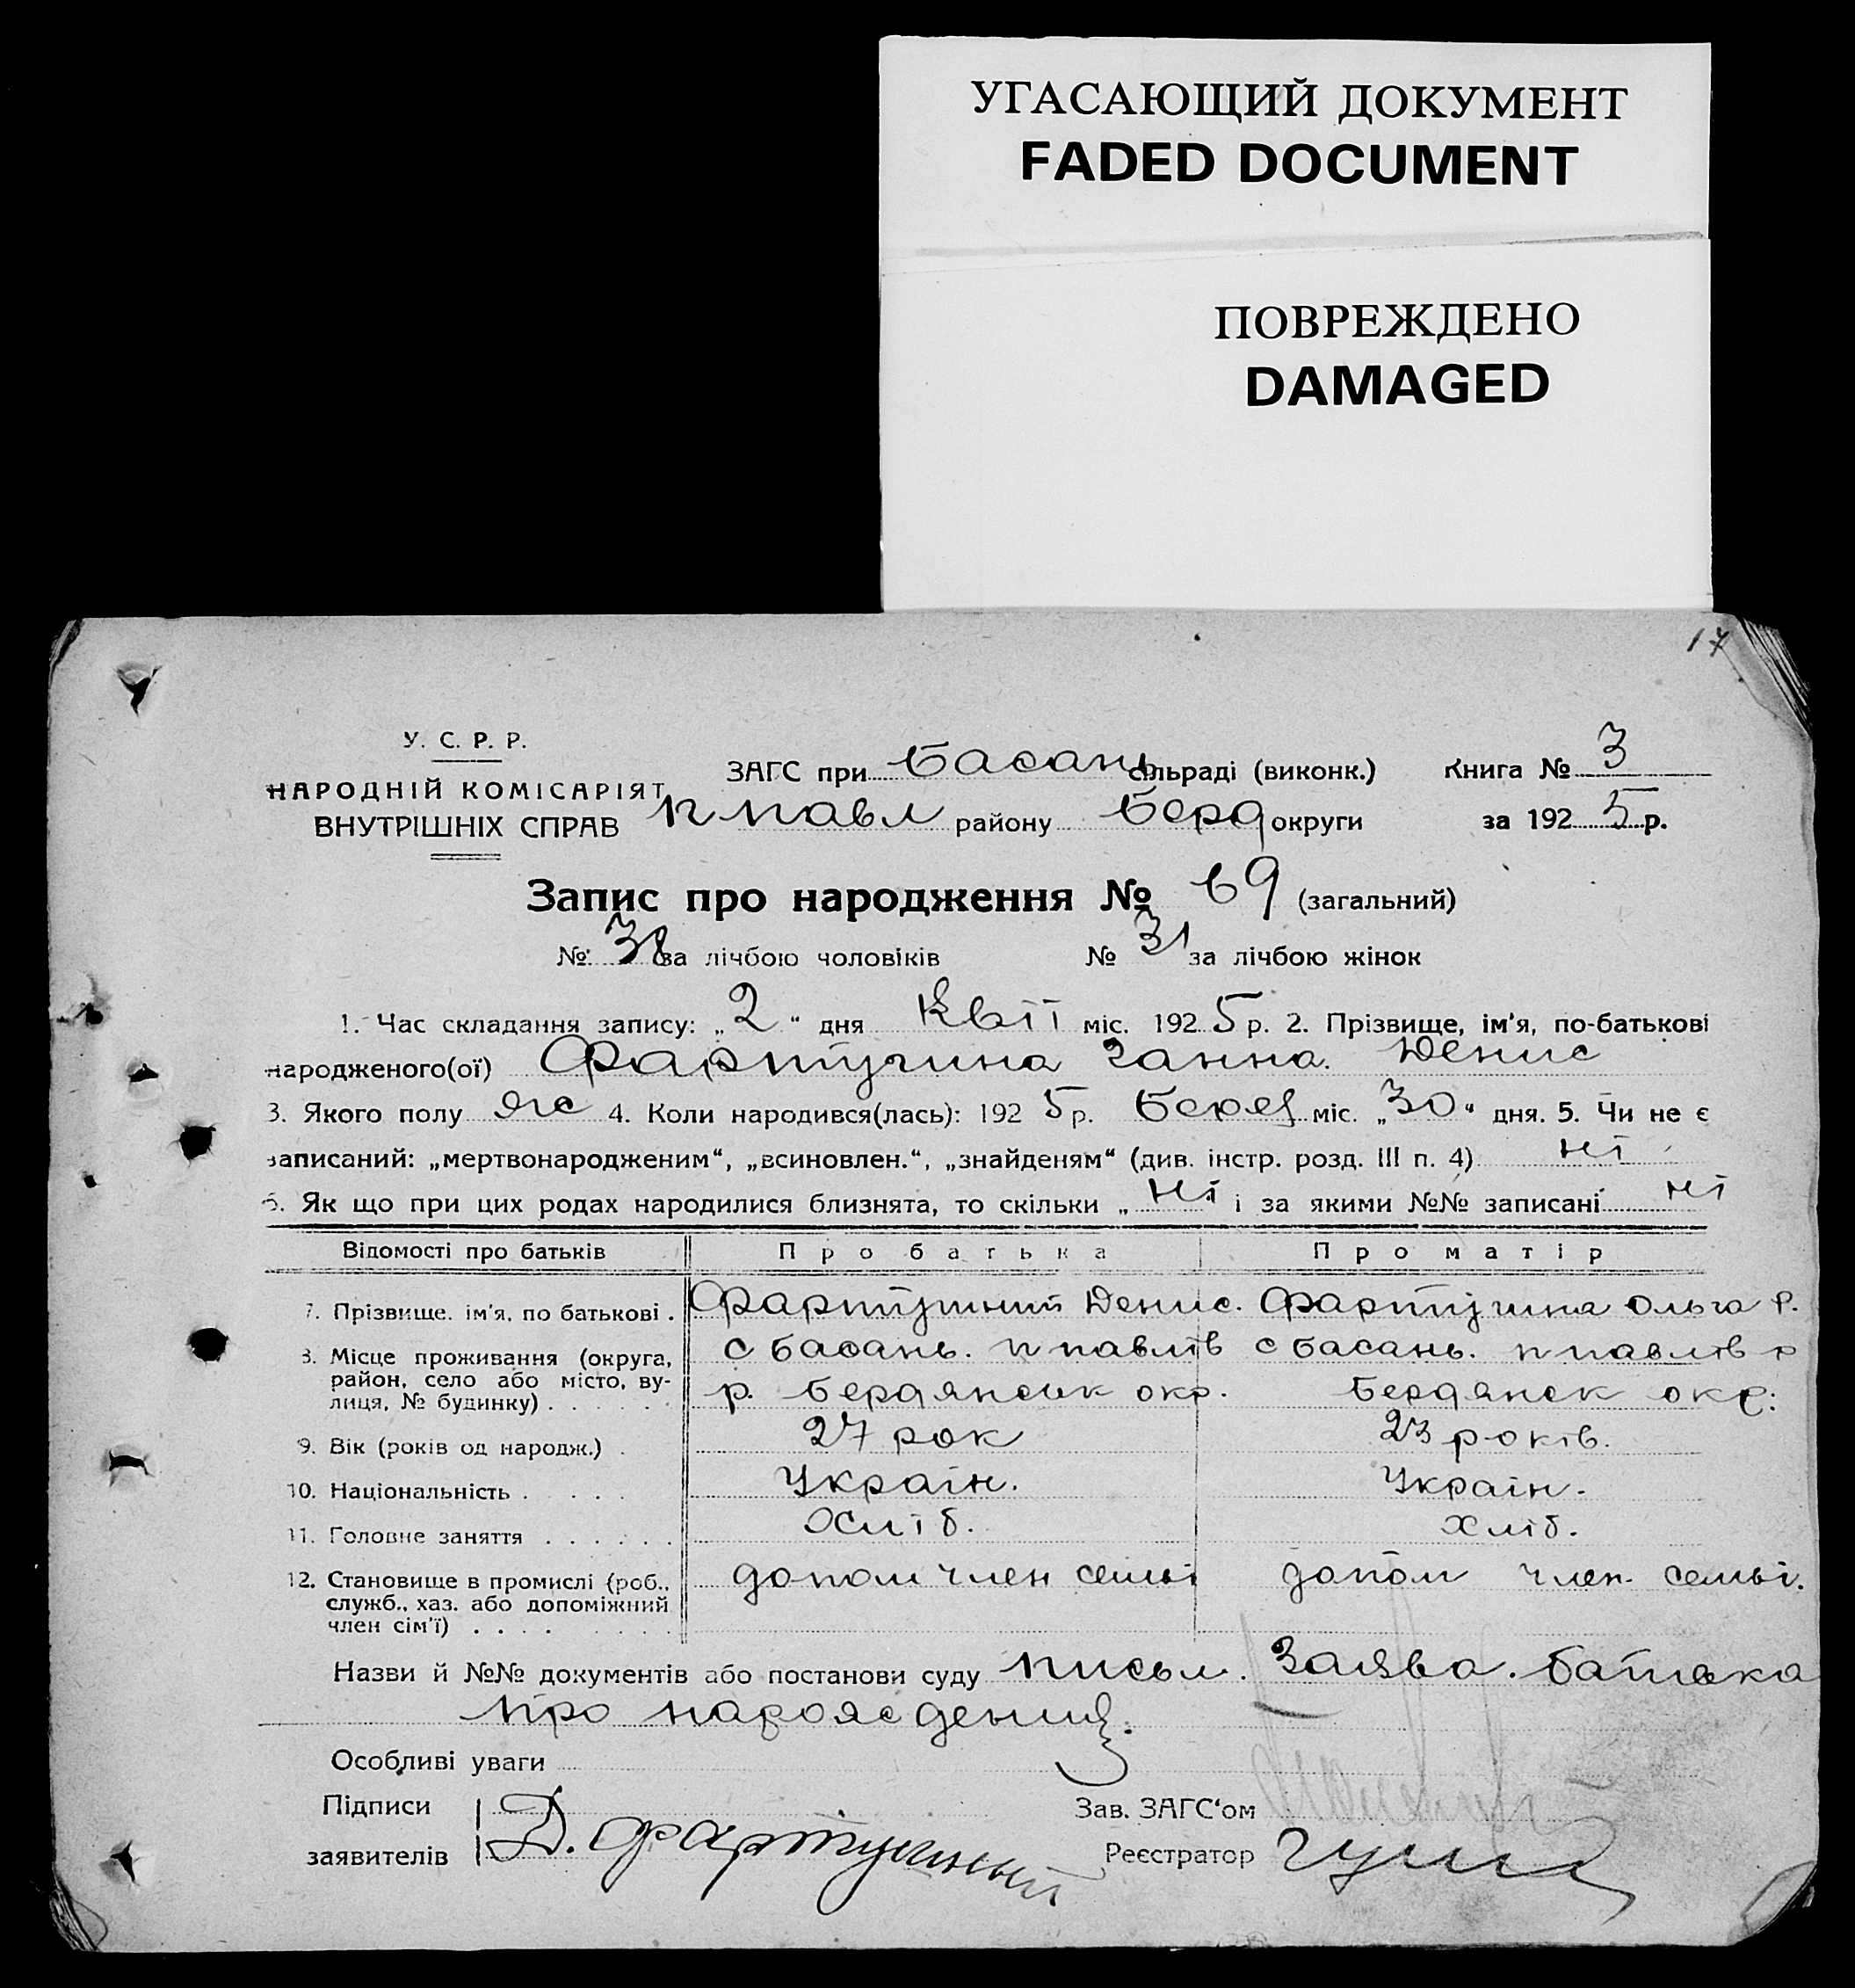 УГАСАЮЩИЙ ДОКУМЕНТ
FADED DOCUMENT
ПОВРЕЖДЕНО
DAMAGED
17
У. С. Р. Р.
НАРОДНІЙ КОМІСАРІЯТ
ВНУТРІШНІХ СПРАВ
ЗАГС при Басань сільраді (виконк.) Книга № 3
п павл району Берд округи за 192 5 р.
Запис про народження № 69 (загальний)
№ 38 за лічбою чоловіків № 31 за лічбою жінок
1. Час складання запису: „ 2 “ дня Квіт міс. 192 5 р. 2. Прізвище, ім'я, по-батькові
народженого(ої) Фартушна Ганна. Денис
3. Якого полу ж 4. Коли народився(лась): 192 5 р. міс. „ 30 “ дня. 5. Чи не є
записаний: „мертвонародженим“, „всиновлен.“, „знайденям“ (див. інстр. розд. III п. 4) ні
6. Як що при цих родах народилися близнята, то скільки „ ні і за якими №№ записані ні
Відомості про батьків Про батька Про матір
7. Прізвище. ім'я, по батькові . Фартушний Денис. Фартушна Ольга
8. Місце проживання (округа, с басань. п павлів с басань. п павлів р
район, село або місто, ву- р. бердянськ окр. бердянск окр.
лиця, № будинку) . . . . . .
9. Вік (років од народж.) . 27 рок 23 років.
10. Національність . . . . . Україн. Україн.
11. Головне заняття . . . . . . Хліб. Хліб.
12. Становище в промислі (роб., допом член семьі допом член семьі.
служб., хаз. або допоміжний
член сім'ї) . . . . . . . .
Назви й №№ документів або постанови суду письм. Заява. батька
про нарождения.
Особливі уваги
Підписи Зав. ЗАГС‘ом
заявителів Д. Фартушный Реєстратор